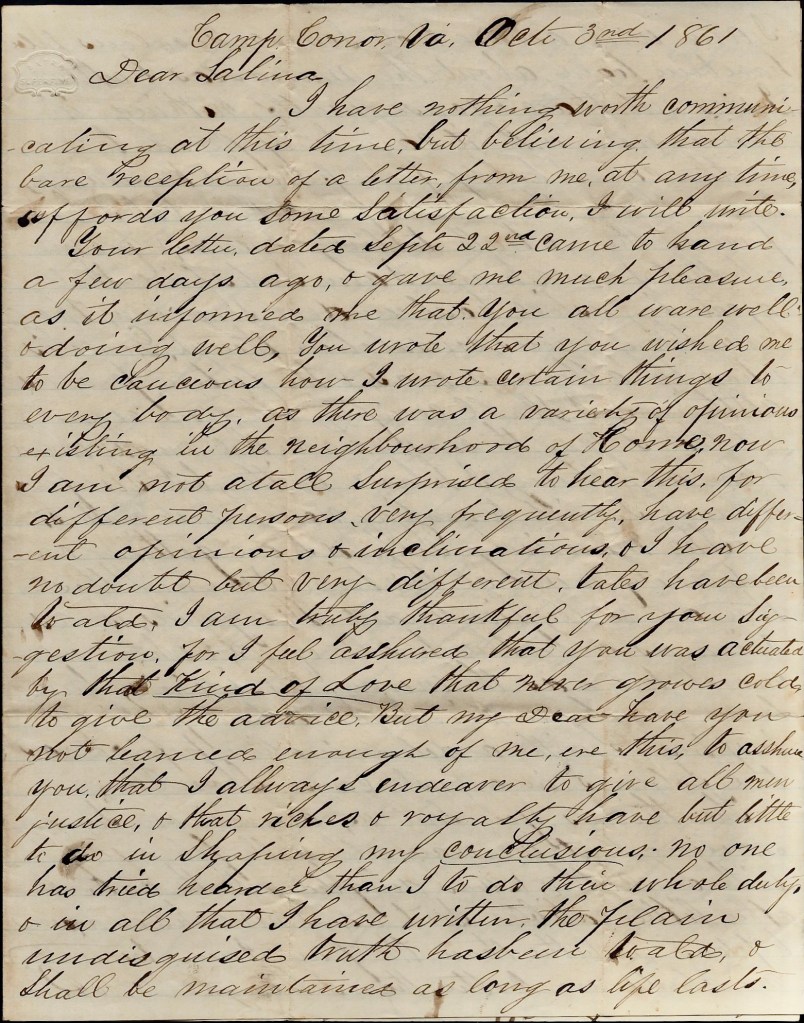 Camp Conor Va. Oct 3nd 1861
Dear Salina
I have nothing worth communi-
-cating at this time, but believing that the
bare reception of a letter, from me, at any time,
affords you some satisfaction, I will write.
Your letter, dated Sept 22nd came to hand
a few days ago, & gave me much pleasure,
as it informed me that you all ware well
& doing well, You wrote that you wished me
to be caucious how I wrote certain things to
every body, as there was a variety of opinions
existing in the neighbourhood of Home, now
I am not atall surprised to hear this, for
different persons very frequently, have differ-
-ent opinions & inclinations, & I have
no doubt but very different tales have been
toald, I am truly thankful for your sug-
-gestion, for I feel asshured that you was actuated
by that Kind of Love that never growes cold,
to give the advice. But my Dear have you
not learned enough of me, ere this, to asshure
you, that I allways endeaver to give all men
justice, & that riches & royalty have but little
to do in shaping my conclusions, no one
has tried hearder than I to do their whole duty,
& in all that I have written, the plain
undisguised truth hasbeen toald, &
shall be maintained as long as life lasts.